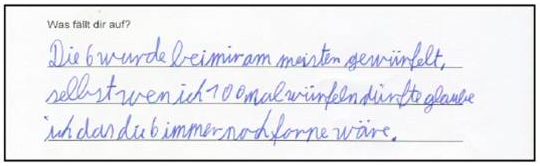 Was fällt dir auf?
Die 6 wurde bei mir am meisten gewürfelt,
selbst wen ich 100 mal würfeln dürfte glaube
ich das die 6 immer noch forne wäre.